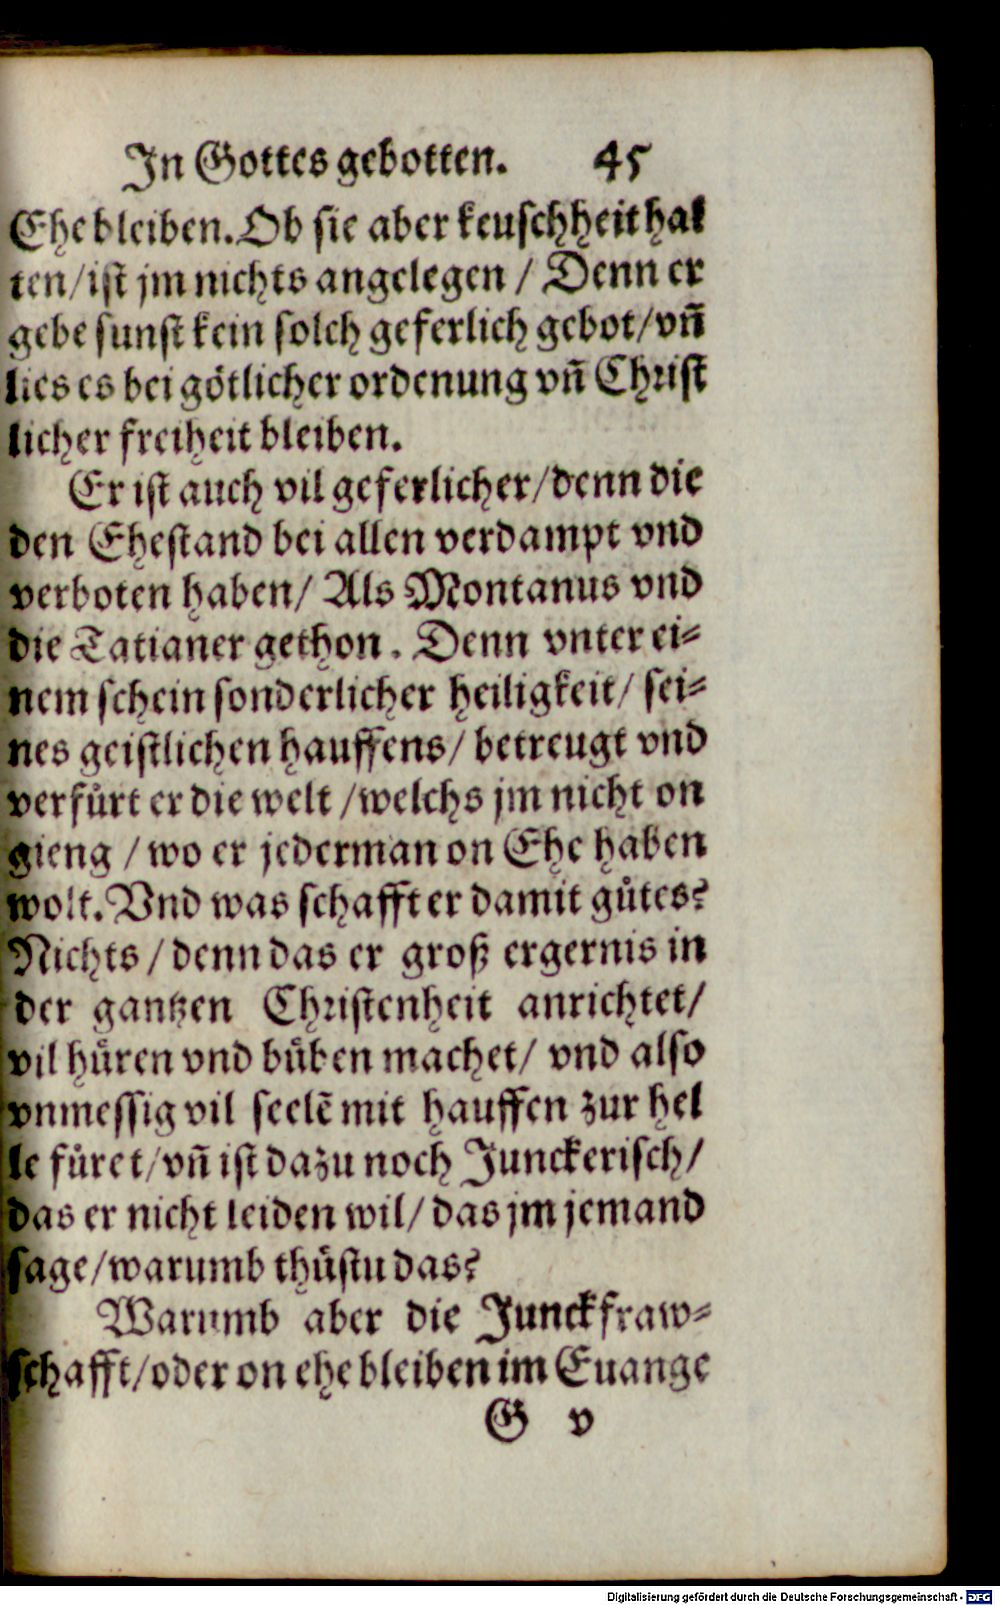 In Gottes gebotten. 45
Ehe bleiben. Ob sie aber keuschheit hal
ten/ ist jm nichts angelegen / Denn er
gebe sunst kein solch geferlich gebot/ vn̄
lies es bei goͤtlicher ordenung vn̄ Christ
licher freiheit bleiben.
Er ist auch vil geferlicher/ denn die
den Ehestand bei allen verdampt vnd
verboten haben/ Als Montanus vnd
die Tatianer gethon. Denn vnter ei⸗
nem schein sonderlicher heiligkeit/ sei⸗
nes geistlichen hauffens/ betreugt vnd
verfuͤrt er die welt / welchs jm nicht on
gieng / wo er jederman on Ehe haben
wolt. Vnd was schafft er damit guͤtes?
Nichts / denn das er groß ergernis in
der gantzen Christenheit anrichtet/
vil huͤren vnd buͤben machet/ vnd also
vnmessig vil seelē mit hauffen zur hel
le fuͤret/ vn̄ ist dazu noch Junckerisch/
das er nicht leiden wil/ das jm jemand
sage/ warumb thuͤstu das?
Warumb aber die Junckfraw⸗
schafft/ oder on ehe bleiben im Euange
G v
Digitalisierung gefördert durch die Deutsche Forschungsgemeinschaft - DFG